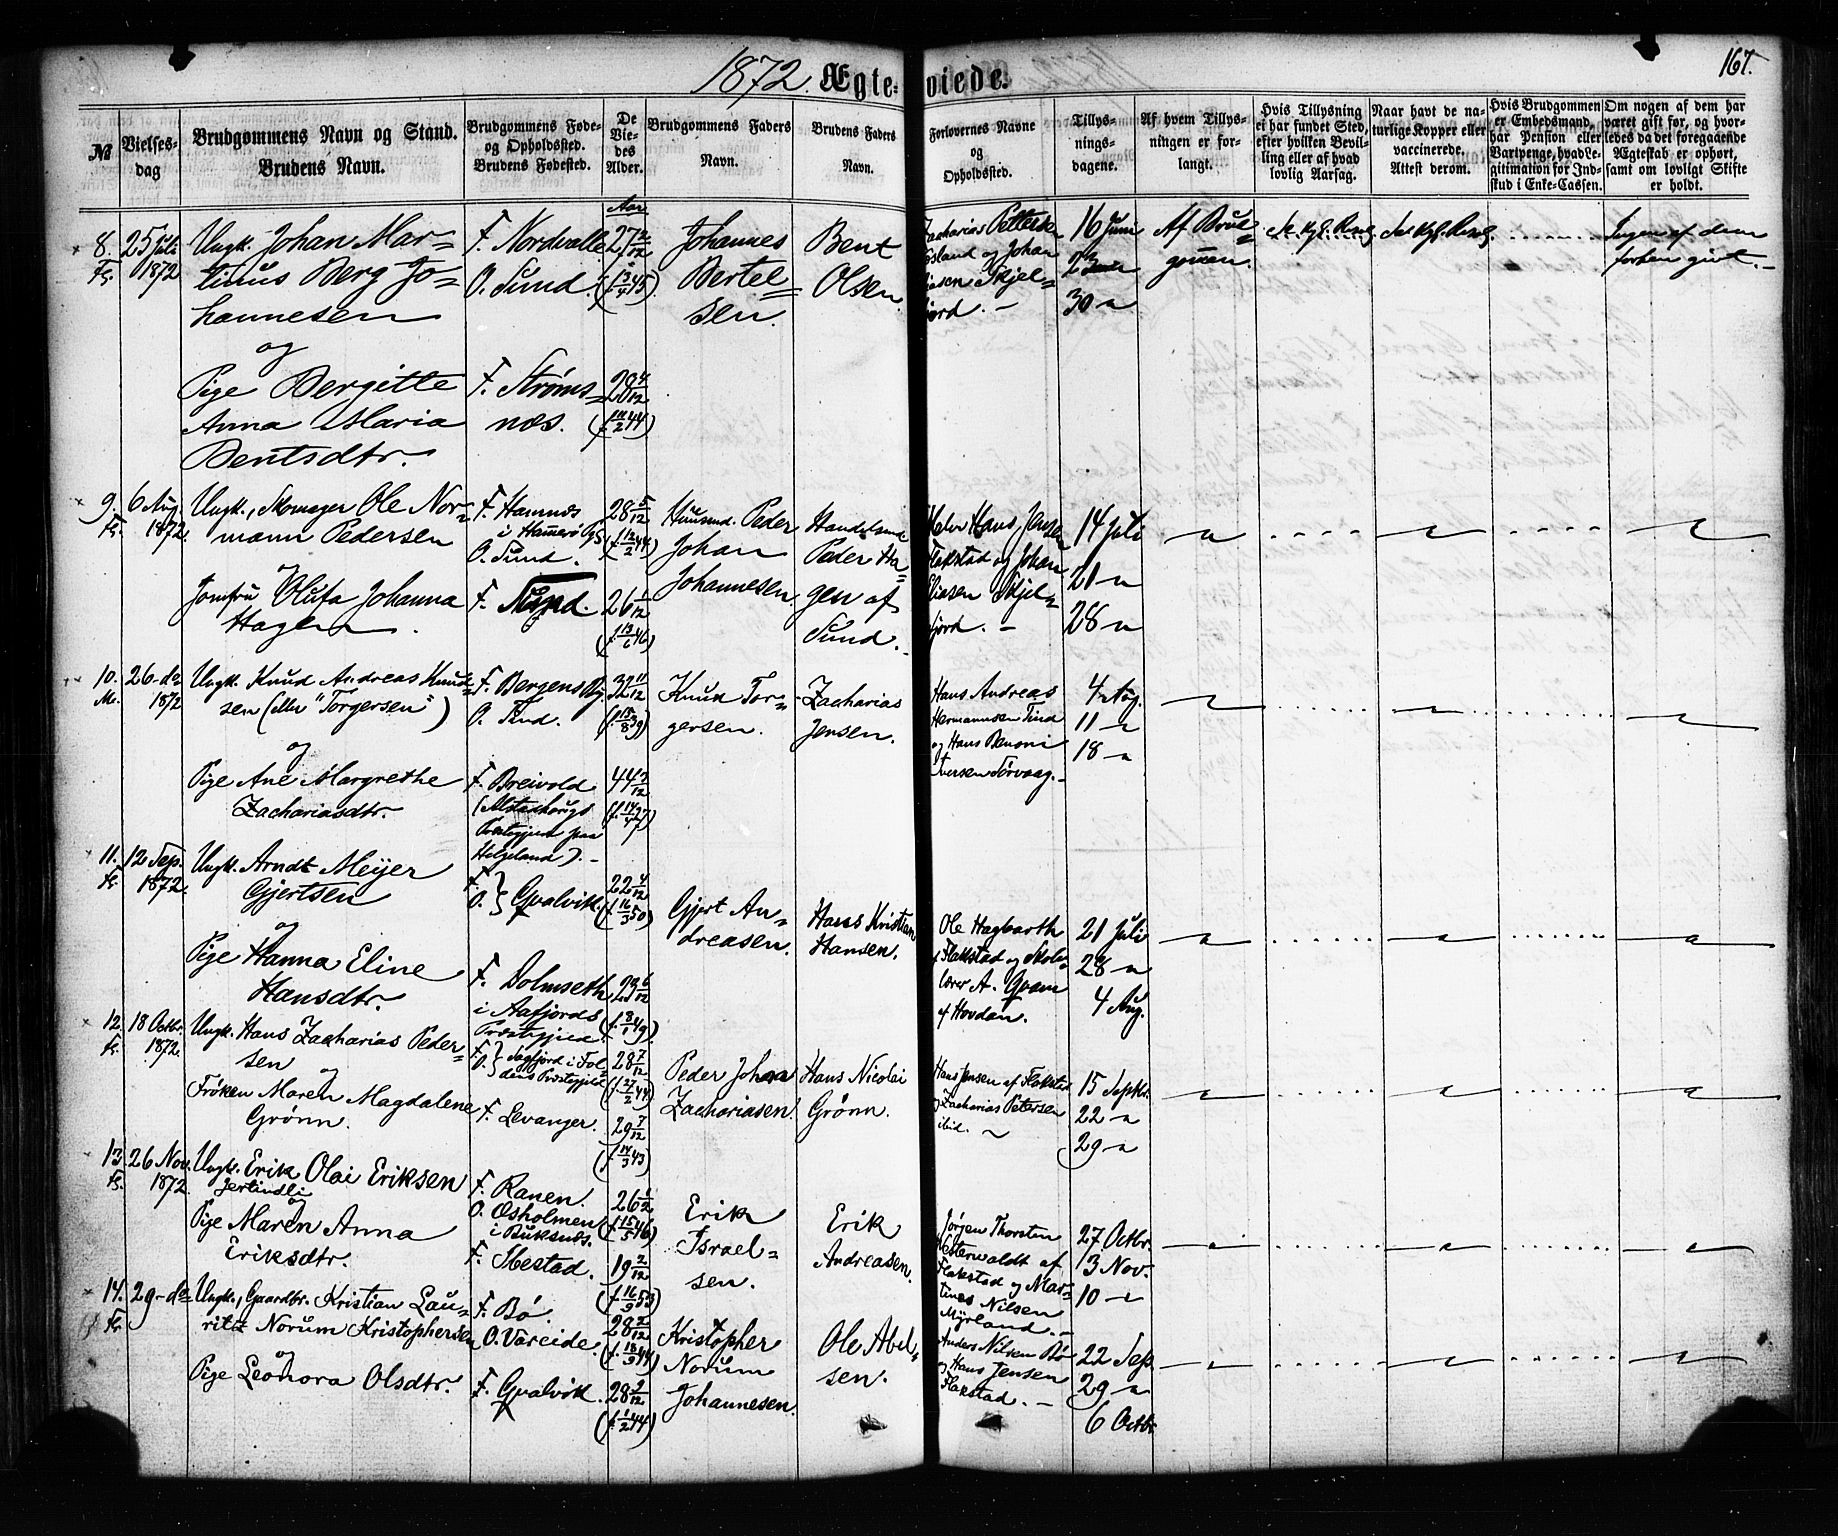 1872. Ægteviede.
167.
№
Vielses-
dag
Brudgommens Navn og Stand.
Brudens Navn.
Brudgommens Føde-
og Opholdssted.
Brudens Fødested.
De
Vie-
des
Alder.
Brudgommens Faders
Navn.
Brudens Faders
Navn.
Forlovernes Navne
og
Opholdssted.
Tillys-
nings-
dagene.
Af hvem Tillys-
ningen er for-
langt.
Hvis Tillysning
ei har fundet Sted,
efter hvilken Bevil-
ling eller af hvad
lovlig Aarsag.
Naar havt de na-
turlige Kopper eller
vaccinerede.
Attest derom.
Hvis Brudgommen
er Embedsmand,
har Pension eller
Vartpenge, hvad Le-
gitimation for Ind-
skud i Enke-Cassen.
Om nogen af dem har
været gift før, og hvor-
ledes da det foregaaende
Ægteskab er ophørt,
samt om lovligt Skifte
er holdt.
Aar
8. 25 Juli
1872
Ungk. Johan Mar-
tinus Berg Jo-
hannesen
og
Pige Bergitte
Anna Maria
Bentsdtr.
F. Nordvalle
O. Sund.
F. Strøms-
næs.
27 2/12
28 4/12
Johannes
Bertel-
sen.
Bent
Olsen.
Zacharias Pettersen
og Johan
Skjel-
fjord. –
16 Juni
23
30 –
Af Brud-
gommen.
Ingen af dem
forhen givt. –
9. 6 Aug.
1872.
Ungk., Skomager Ole Nor-
mann Pedersen
Jomfru Olufa Johanna
Hagen.
F. Hamnes
i Hammerø
O. Sund.
F. Sund.
28 5/12
(f. 12/2 44)
26 1/12
(f. 13/6 46)
Huusmd. Peder
Johan
Johannesen.
Handelsmd
Peder Ha-
gen af
Sund.
Hans Jensen
Flakstad og Johan
Eliasen Skjel-
fjord. –
14 Juli
21 –
28 –
10. 26 – do
1872
Ungk. Knud Andreas Knud-
sen (eller "Torgersen")
og
Pige Ane Margrethe
Zachariasdtr.
F. Bergens By.
O. Tind.
F. Breivold
(Alstadhougs
Præstegjeld paa
Helgeland). –
32 11/12
(f. 15/8 39)
44 2/12
(f. 14/4 27)
Knud Tor-
gersen.
Zacharias
Jensen.
Hans Andreas
Hermannsen Tind
og Hans Benoni
Iversen Sørvaag. –
4 Aug.
11 –
18 –
11. 12 Sep.
1872.
Ungk. Arndt Meijer
Gjertsen
og
Pige Hanna Eline
Hansdtr.
F.
O. } Qvalvik.
F. Dolmseth
i Aafjords
Præstegjeld.
22 4/12
(f. 16/3 50)
23 6/12
(f. 8/1 49)
Gjert An-
dreasen.
Hans Kristian
Hansen.
Ole Hagbarth
Flakstad og Skole-
lærer A. Qvam
af Hovdan.
21 Juli
28 –
4 Aug.
12. 18 Octbr.
1872.
Ungk. Hans Zacharias Peder-
sen
og
Frøken Maren Magdalene
Grönn.
F.
O. } Sagfjord i Fol-
dens Præstegjeld
F. Levanger.
28 7/12
(f. 27/2 44)
29 7/12
(f. 14/3 43)
Peder Johan
Zachariasen.
Hans Nicolai
Grönn.
Hans Jensen af Flakstad
og Zacharias Petersen
ibid. –
15 Septbr.
22 –
29 –
13. 26 Nov.
1872.
Ungk. Erik Olai Eriksen
Jerlindli
og
Pige Maren Anna
Eriksdtr.
F. Ranen.
O. Osholmen
i Buksnæs.
F. Ilbestad.
26 6/12
(f. 15/5 46)
19 2/12
(f. 16/9 53)
Erik
Israel-
sen.
Erik
Andreasen.
Jørgen Thorsten
Westerwaldt af
Flakstad og Mar-
tines Nilsen
Myrland. –
27 Octbr.
3 Nov.
10 –
14. 29 – do
Ungk., Gaardbr. Kristian Lau-
ritz Norum Kristophersen
og
Pige Leonora Olsdtr.
F. Bø.
O. Vareide.
F. Qvalvik.
28 2/12
(f. 18/9 44)
28 9/12
(f. 1/2 44)
Kristopher
Norum
Johannesen.
Ole Abel-
sen.
Anders Nilsen Bø
og Hans Jensen
Flakstad. –
22 Sep.
29 –
6 Octbr.